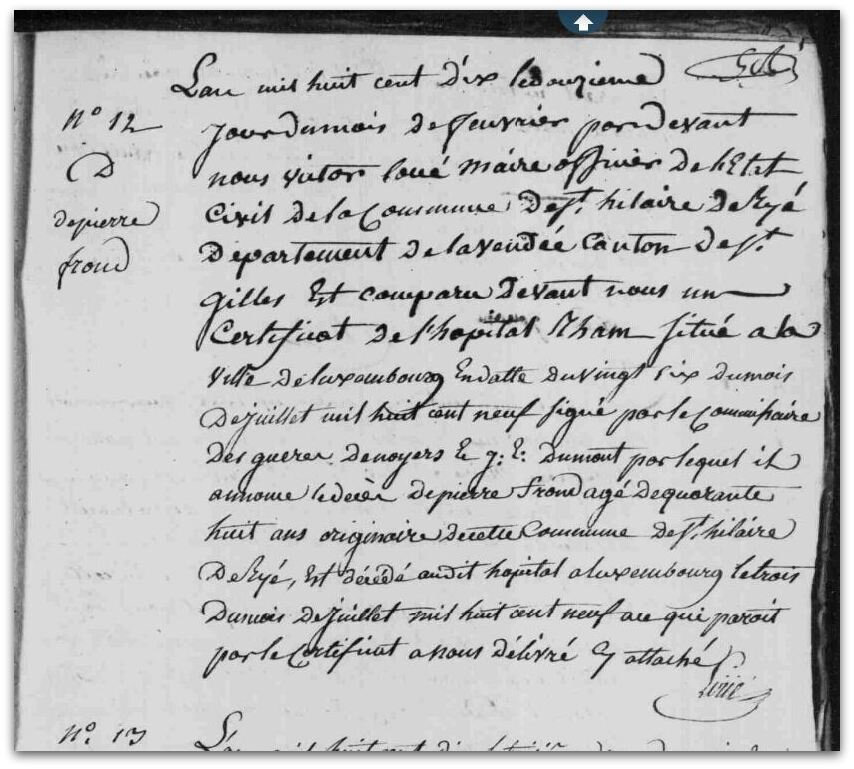 L'an mil huit cent dix le douzieme
N° 12
D
de pierre
froud
jour du mois de feuvrier par devant
nous victor loué maire officier de l'Etat
Civil de la Commune de St. hilaire de Ryé
Departement de la vendée Canton de St.
gilles Est comparu devant nous un
Certificat de l'hopital Rham situé a la
ville de luxembourg En datte du vingt six du mois
De juillet mil huit cent neuf signé par le Commissaire
Des guerer Denoyers Dumont par lequel il
annonce le décèr de pierre froud agé de quarante
huit ans originaire de cette Commune de St. hilaire
De Ryé, Est décédé au dit hopital a luxembourg le trois
Du mois de juillet mil huit cent neuf a ce qui paroit
par le Certificat a nous délivré Cy attaché
N°. 13
L'an mil huit cent dix le